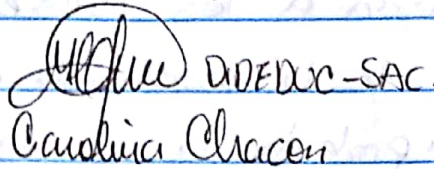 DIDEDUC-SAC.
Carolina Chacon